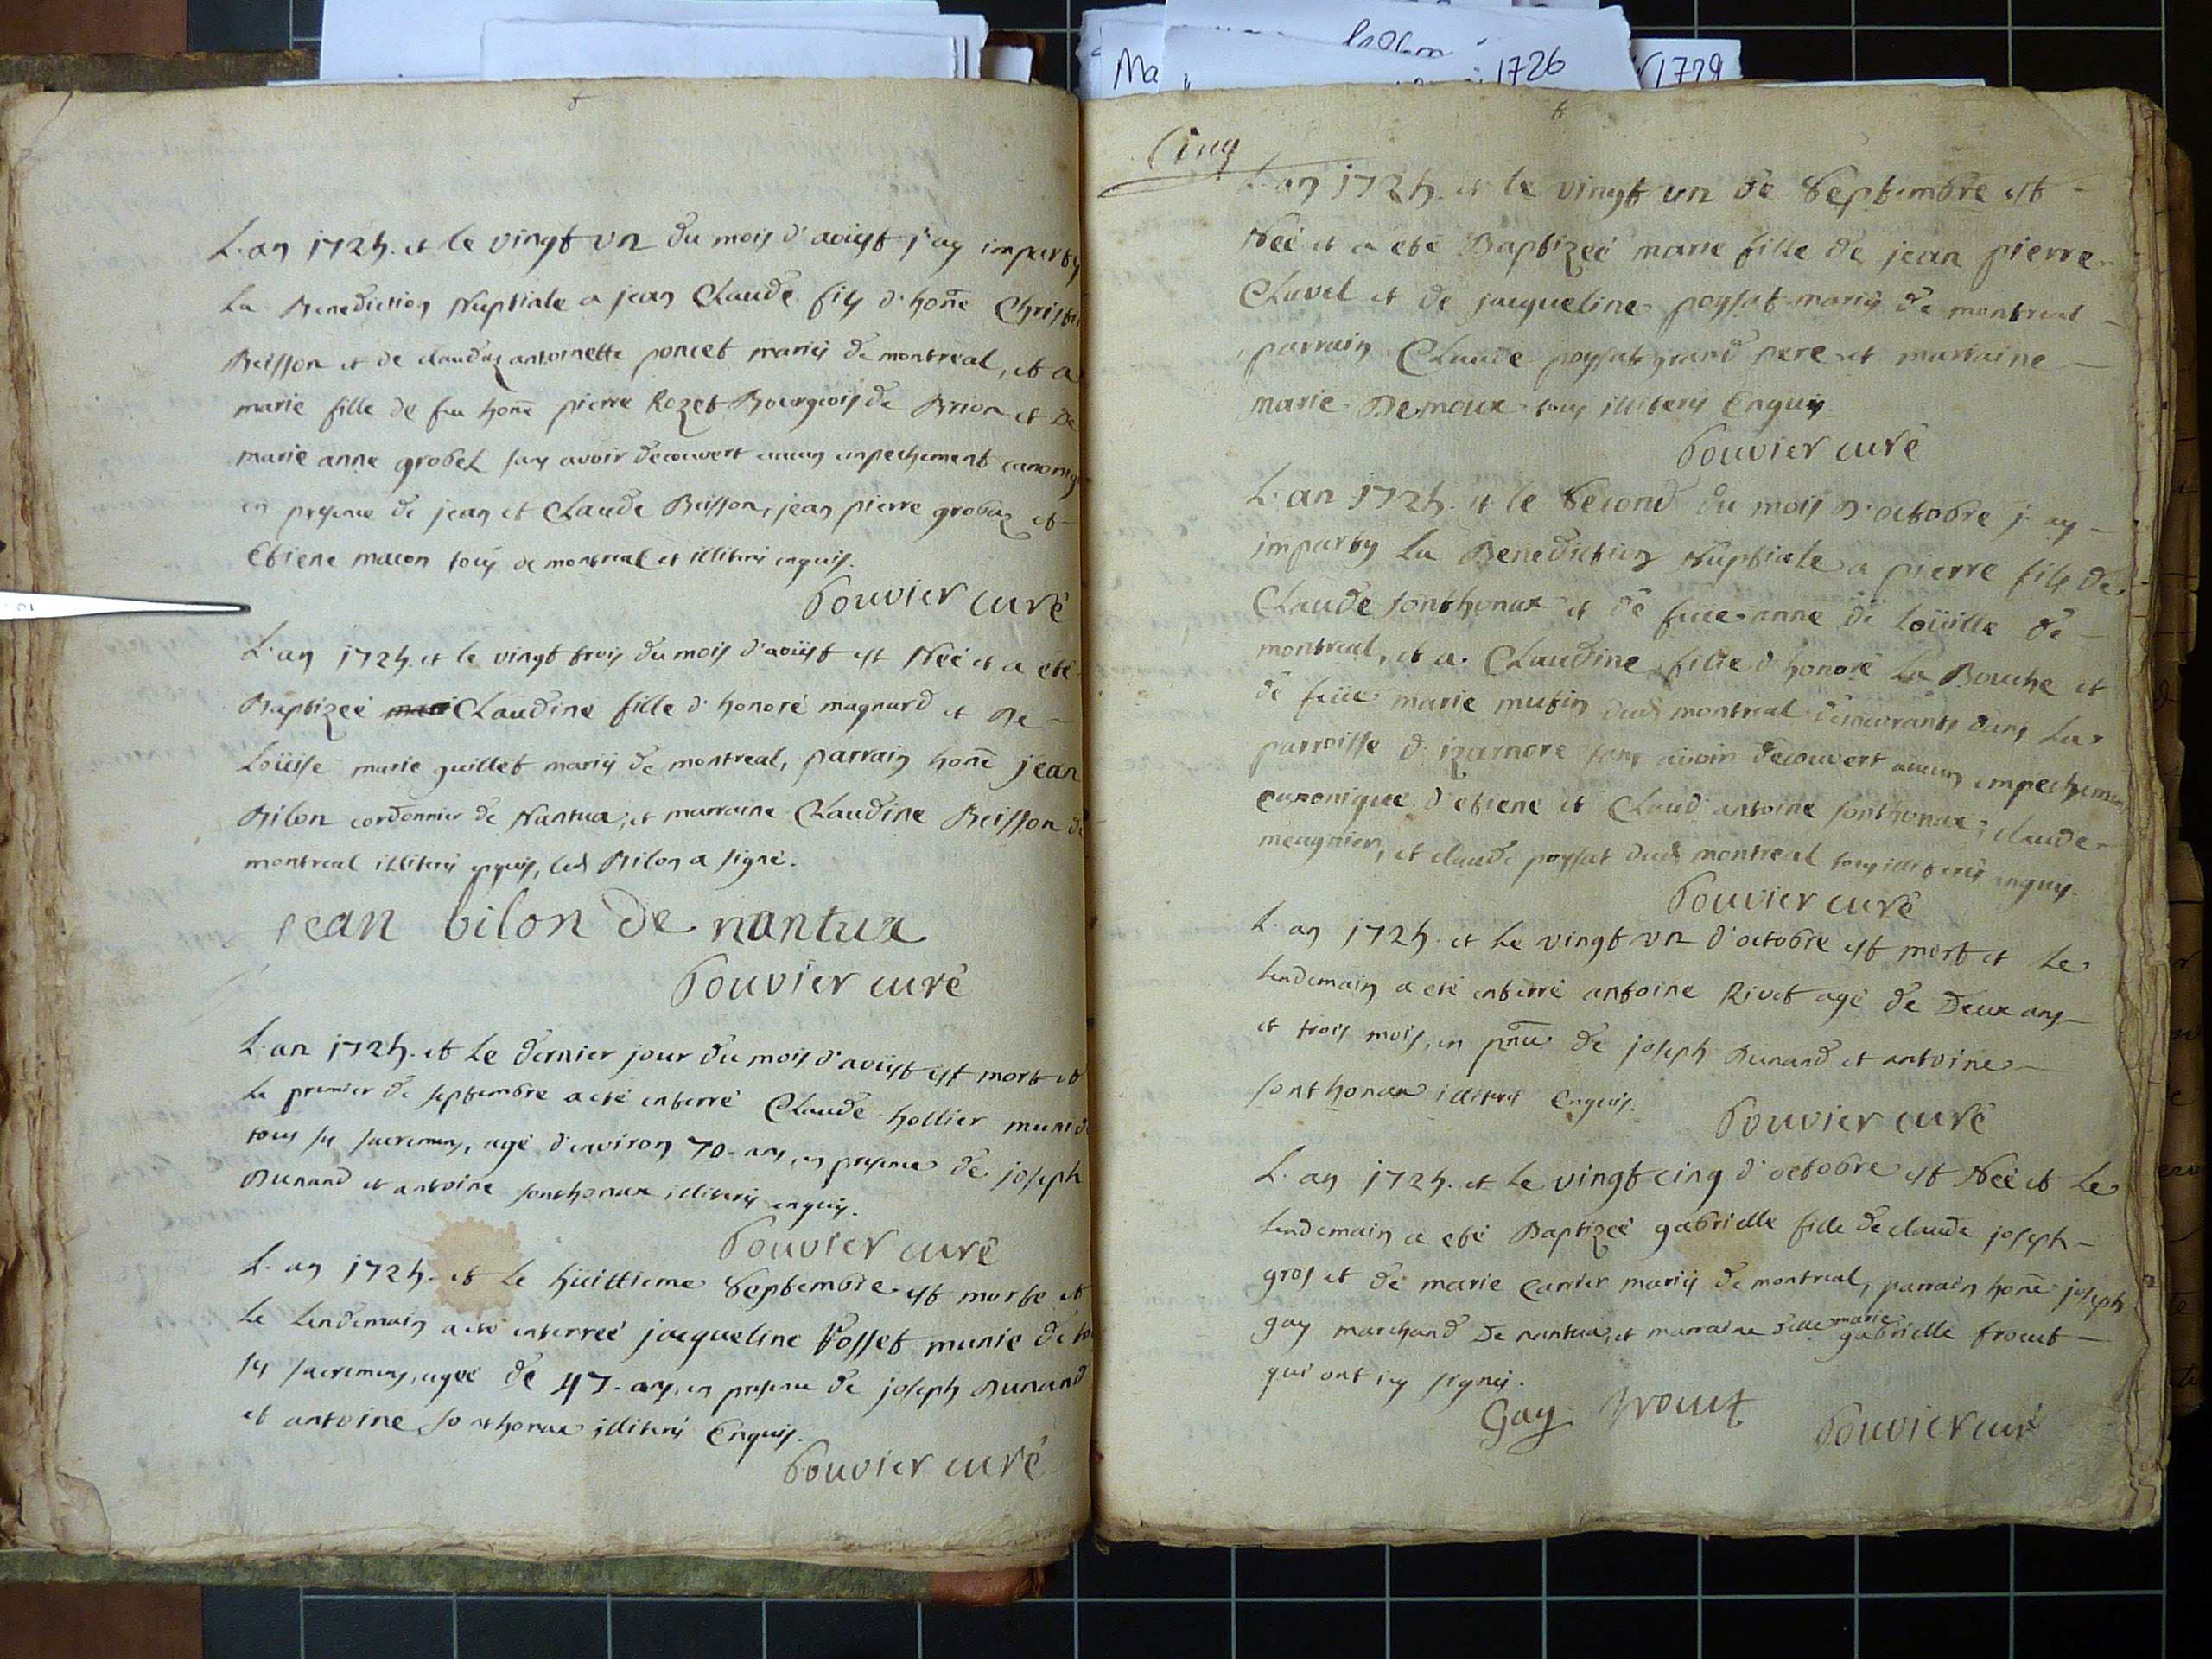 1726
Ma
1729
L'an 1724. et le vingt un du mois d'aoüst j'ay imparty
La Benediction Nuptiale a jean Claude fils d'hone Christ
Buisson et de claudaz antoinette poncet mariés de montreal, et a
marie fille de feu hone pierre Rozet Bourgeois de Brion et De
marie anne grobel sans avoir decouvert aucun empechement canoniq
en presence de jean et Claude Buisson, jean pierre grobaz et
Etiene macon tous de montreal et illiterés enquis.
Bouvier curé
L'an 1724. et le vingt trois du mois d'aoüst est Neé et a eté
Baptizeé Claudine fille d'honoré magnard et De
Loüise marie guillet mariés de montreal, parrain hone jean
Bilon cordonnier de Nantua, et marraine Claudine Buisson de
montreal illiterés enquis, led Bilon a signé.
jean bilon de nantua
Bouvier curé
L'an 1724. et Le dernier jour du mois d'aoüst est mort et
Le premier de septembre a eté enterré Claude hollier muni de
tous ses sacremens, agé d'environ 70. ans, en presence de joseph
Dunand et antoine sonthonax illiterés enquis.
Bouvier curé
L'an 1724. et Le hüittieme Septembre est morte et
Le Lendemain a eté enterreé jacqueline Fosset munie de to
ses sacremens, ageé de 47. ans, en presence de joseph Dunand
et antoine Sonthonax illiterés Enquis.
Bouvier curé
Cinq
L'an 1724. et le vingt un de Septembre est
Neé et a eté Baptizeé marie fille de jean pierre
Cluvel et de jacqueline poysat mariés de montreal
parrain Claude poysat grand pere et marraine
marie Demoux tous illiterés Enquis.
Bouvier curé
L'an 1724. et le Second du mois D'octobre j'ay
imparty La Benediction Nuptiale a pierre fils de
Claude sonthonax et de feüe anne de Loüille de
montreal, et a Claudine fille d'honoré La Bouche et
de feüe marie mutin dud montreal demeurants dans La
parroisse d'izarnore sans avoir decouvert aucun empechement
canonique d'etiene et Claud antoine sonthonax, claude
meugnier, et claude poysat dud montreal tous illiterés enquis.
Bouvier curé
L'an 1724. et Le vingt un d'octobre est mort et Le
Lendemain a eté enterré antoine Rivet agé de Deux ans
et trois mois, en pnce de joseph Dunand et antoine
sonthonax illiterés Enquis.
Bouvier curé
L'an 1724. et Le vingt cinq d'octobre est Neé et Le
Lendemain a eté Baptizeé gabrielle fille de claude joseph
gros et de marie carrier mariés de montreal, parrain hone joseph
gay marchand De nantua, et marraine Delle marie gabrielle frouet
qui ont icy signés.
Gay frouet Bouvier curé